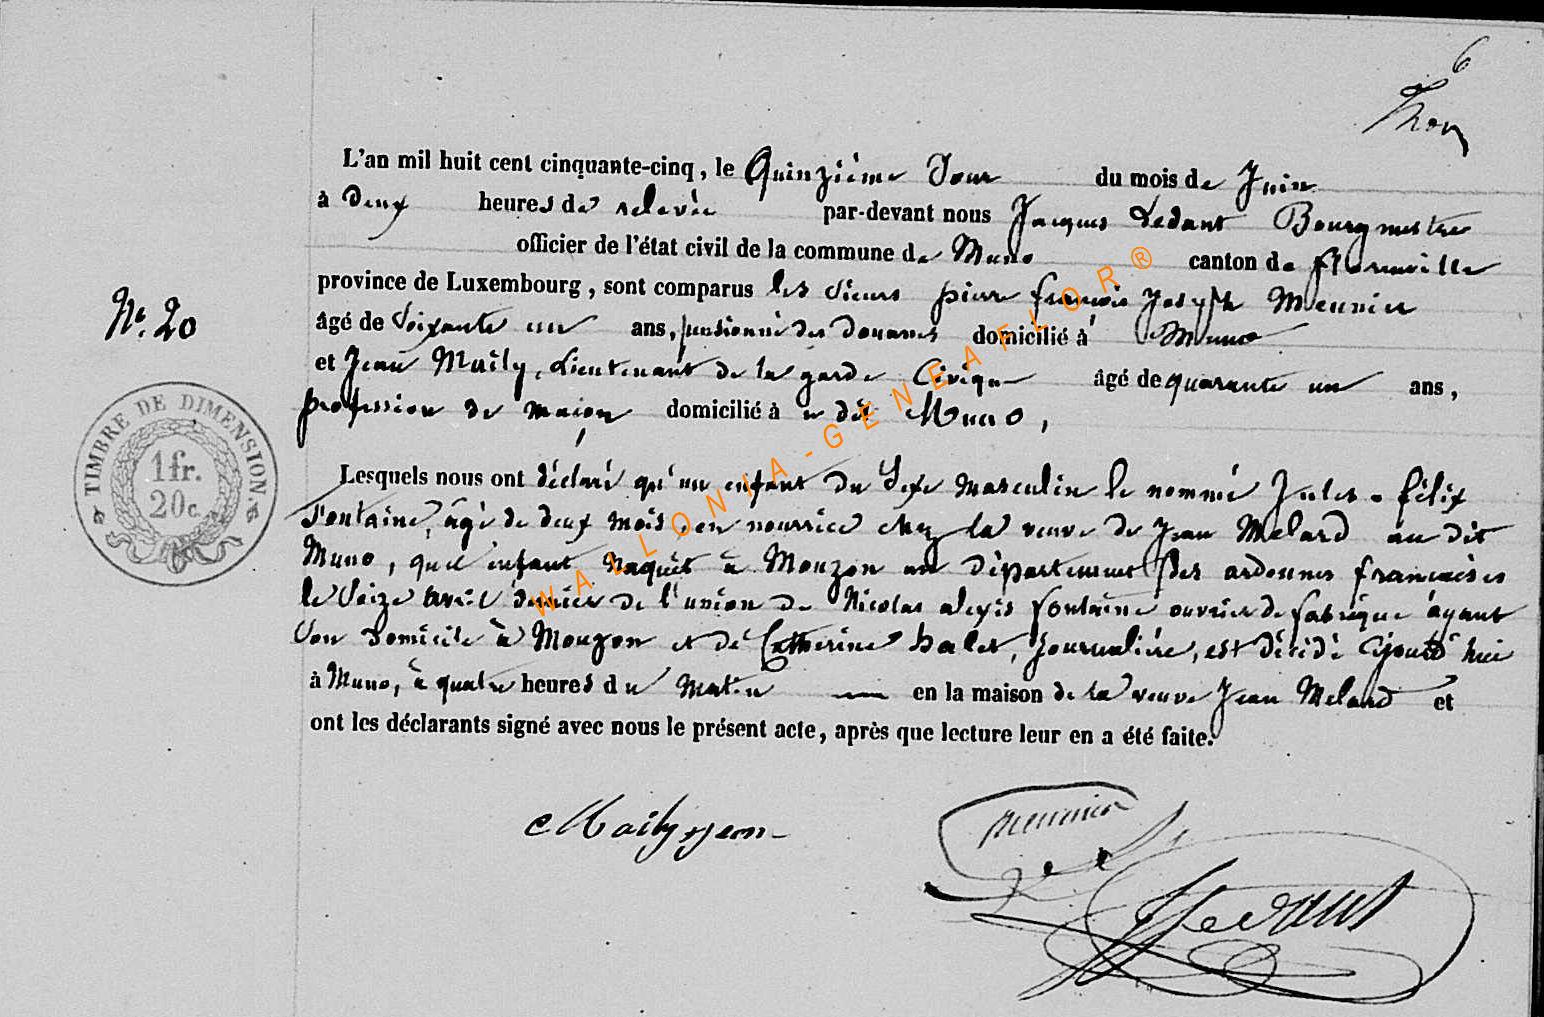 6
L'an mil huit cent cinquante-cinq, le Quinzième Jour du mois de Juin
à deux heures de relevée par-devant nous Jacques Ledant Bourgmestre
officier de l'état civil de la commune de Muno canton de florenville
province de Luxembourg, sont comparus les Sieurs pierre françois Joseph Meunier
âgé de Soixante un ans, pensionné des Douanes domicilié à Muno
et Jean Maily, Lieutenant de la garde Civique âgé de quarante un ans,
profession de maçon domicilié à u dit Muno,
Lesquels nous ont déclaré qu'un enfant du Sexe masculin le nommé Jules-félix
fontaine, âgé de deux mois, en nourrice chez la veuve de Jean Melard au dit
Muno, quel enfant Naquit à Mouzon au département des ardennes françaises
le Seize avril dernier de l'union de Nicolas alexis fontaine ouvrier de fabrique ayant
Son Domicile à Mouzon et de Catherine halet, Journalière, est décédé cejourd'hui
à Muno, à quatre heures du Matin en la maison de la veuve Jean Melard et
ont les déclarants signé avec nous le présent acte, après que lecture leur en a été faite.
N.° 20
TIMBRE DE DIMENSION.
1 fr.
20 c.
Maily jean
meunier
J Ledant
WALLONIA-GENEAFLOR®